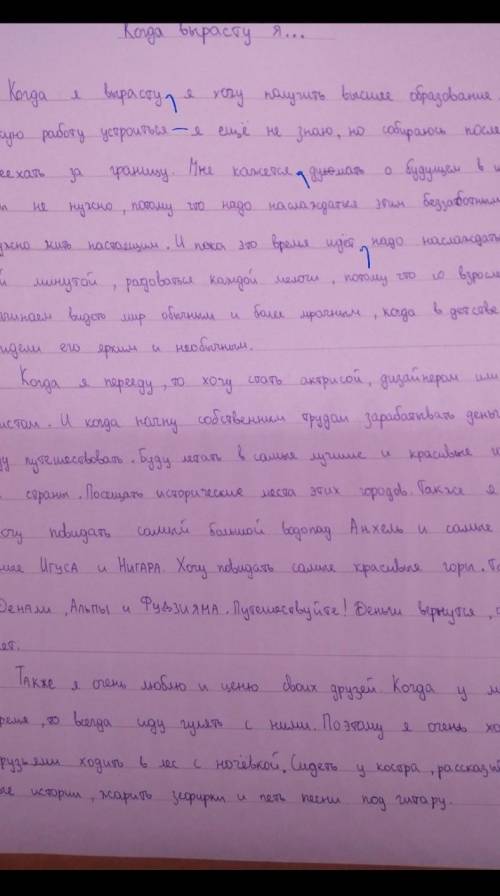 Когда вырасту я...
Когда я вырасту, я хочу получить высшее образование.
работу устроиться — я ещё не знаю, но собираюсь после
за границу. Мне кажется, думать о будущем в
не нужно, потому что надо наслаждаться этим беззаботным
жить настоящим. И пока это время идёт, надо
минутой, радоваться каждой мелочи, потому что
видеть мир обычным и более мрачным, когда в детстве
его ярким и необычным.
Когда я перееду, то хочу стать актрисой, дизайнером или
И когда начну собственным трудом зарабатывать
путешествовать. Буду летать в самые лучшие и красивые
страны. Посещать исторические места этих городов. Также я
повидать самый большой водопад Анхель и самые
Игуса и Нигара. Хочу повидать самые красивые горы.
Денали, Альпы и Фудзияма. Путешествуйте! Деньги вернутся,
Также я очень люблю и ценю своих друзей. Когда у
то всегда иду гулять с ними. Поэтому я очень
ходить в лес с ночёвкой. Сидеть у костра,
истории, жарить зефирки и петь песни под гитару.